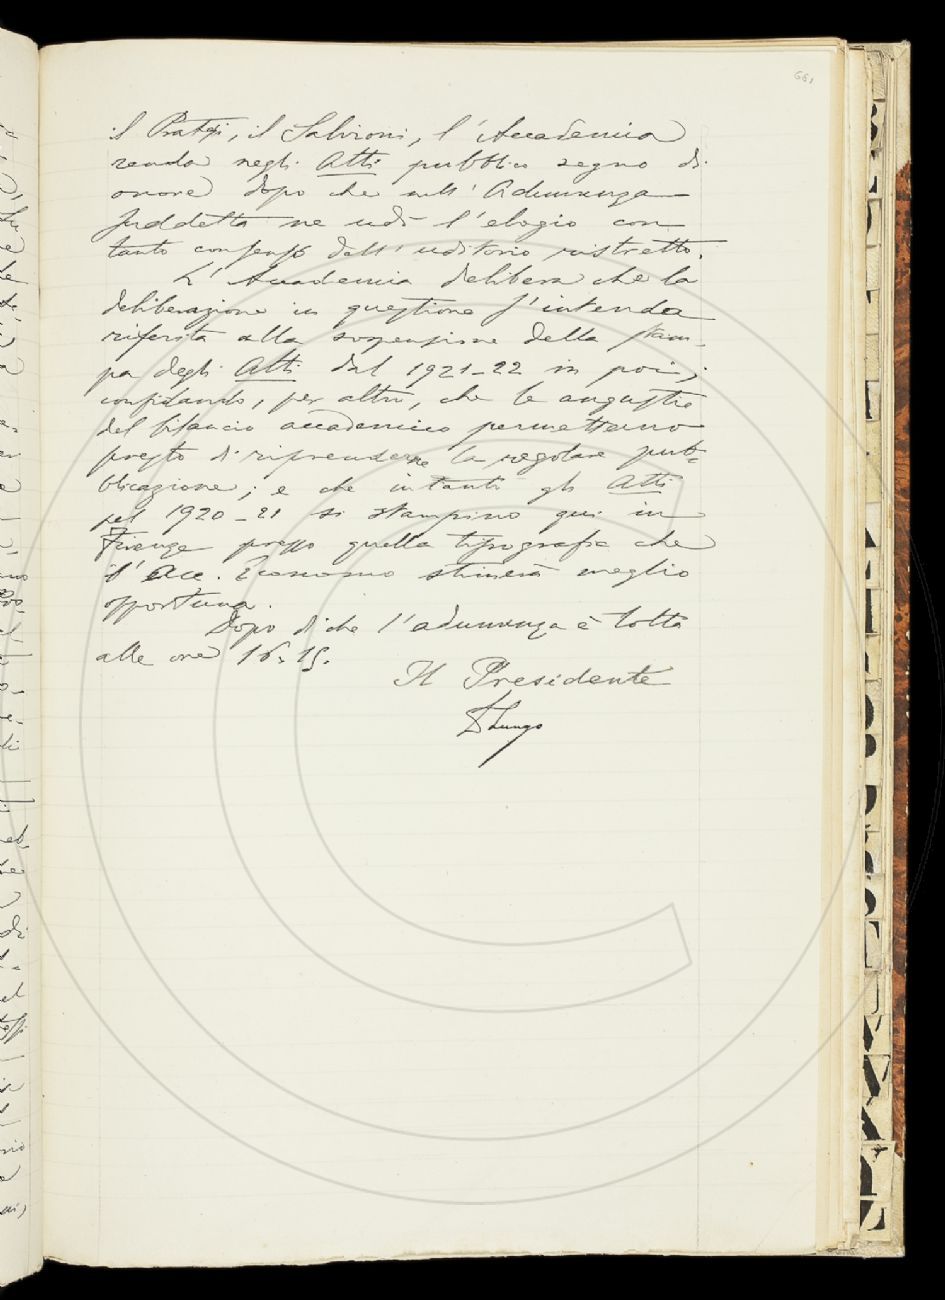 661
il Pratesi, il Salvioni, l'Accademia
renda negli Atti pubblico segno di
onore dopo che nell'Adunanza
suddetta ne udì l'elogio con
tanto consenso dell'uditorio ristretto.
L'Accademia delibera che la
deliberazione in questione s'intenda
riferita alla sospensione della stam-
pa degli Atti dal 1921-22 in poi;
confidando, per altro, che le angustie
del bilancio accademico permettano
presto di riprenderne la regolare pub-
blicazione; e che intanto gli Atti
pel 1920-21 si stampino qui in
Firenze presso quella tipografia che
l'Acc. Economo stimerà meglio
opportuna.
Dopo di che l'adunanza è tolta
alle ore 16.15.
Il Presidente